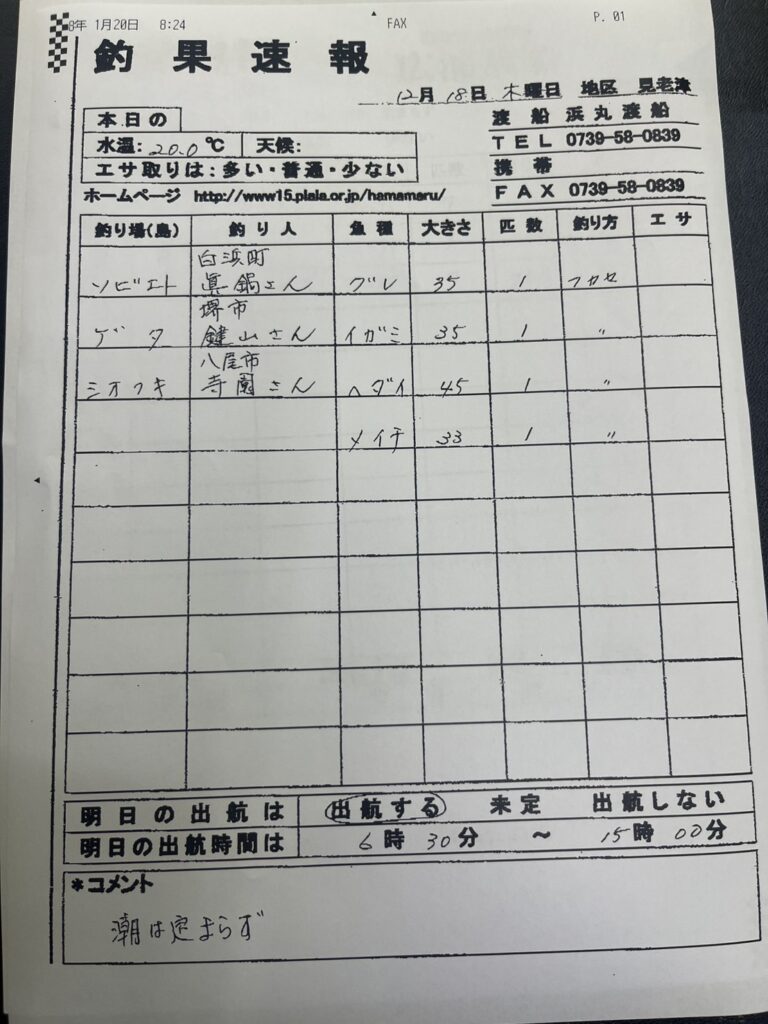 8年 1月20日 8:24 FAX P. 01
釣果速報
12月 18日 木曜日 地区 見老津
本日の
水温: 20.0℃ 天候:
エサ取りは:多い・普通・少ない
渡船 浜丸渡船
TEL 0739-58-0839
携帯
FAX 0739-58-0839
ホームページ http://www15.plala.or.jp/hamamaru/
釣り場(島) 釣り人 魚種 大きさ 匹数 釣り方 エサ
白浜町
ソビエト 眞鍋さん グレ 35 1 フカセ
堺市
ゲタ 鍵山さん イガミ 35 1 〃
八尾市
シオフキ 寺園さん ヘダイ 45 1 〃
メイチ 33 1 〃
明日の出航は 出航する 未定 出航しない
明日の出航時間は 6時 30分 ~ 15時 00分
*コメント
潮は定まらず